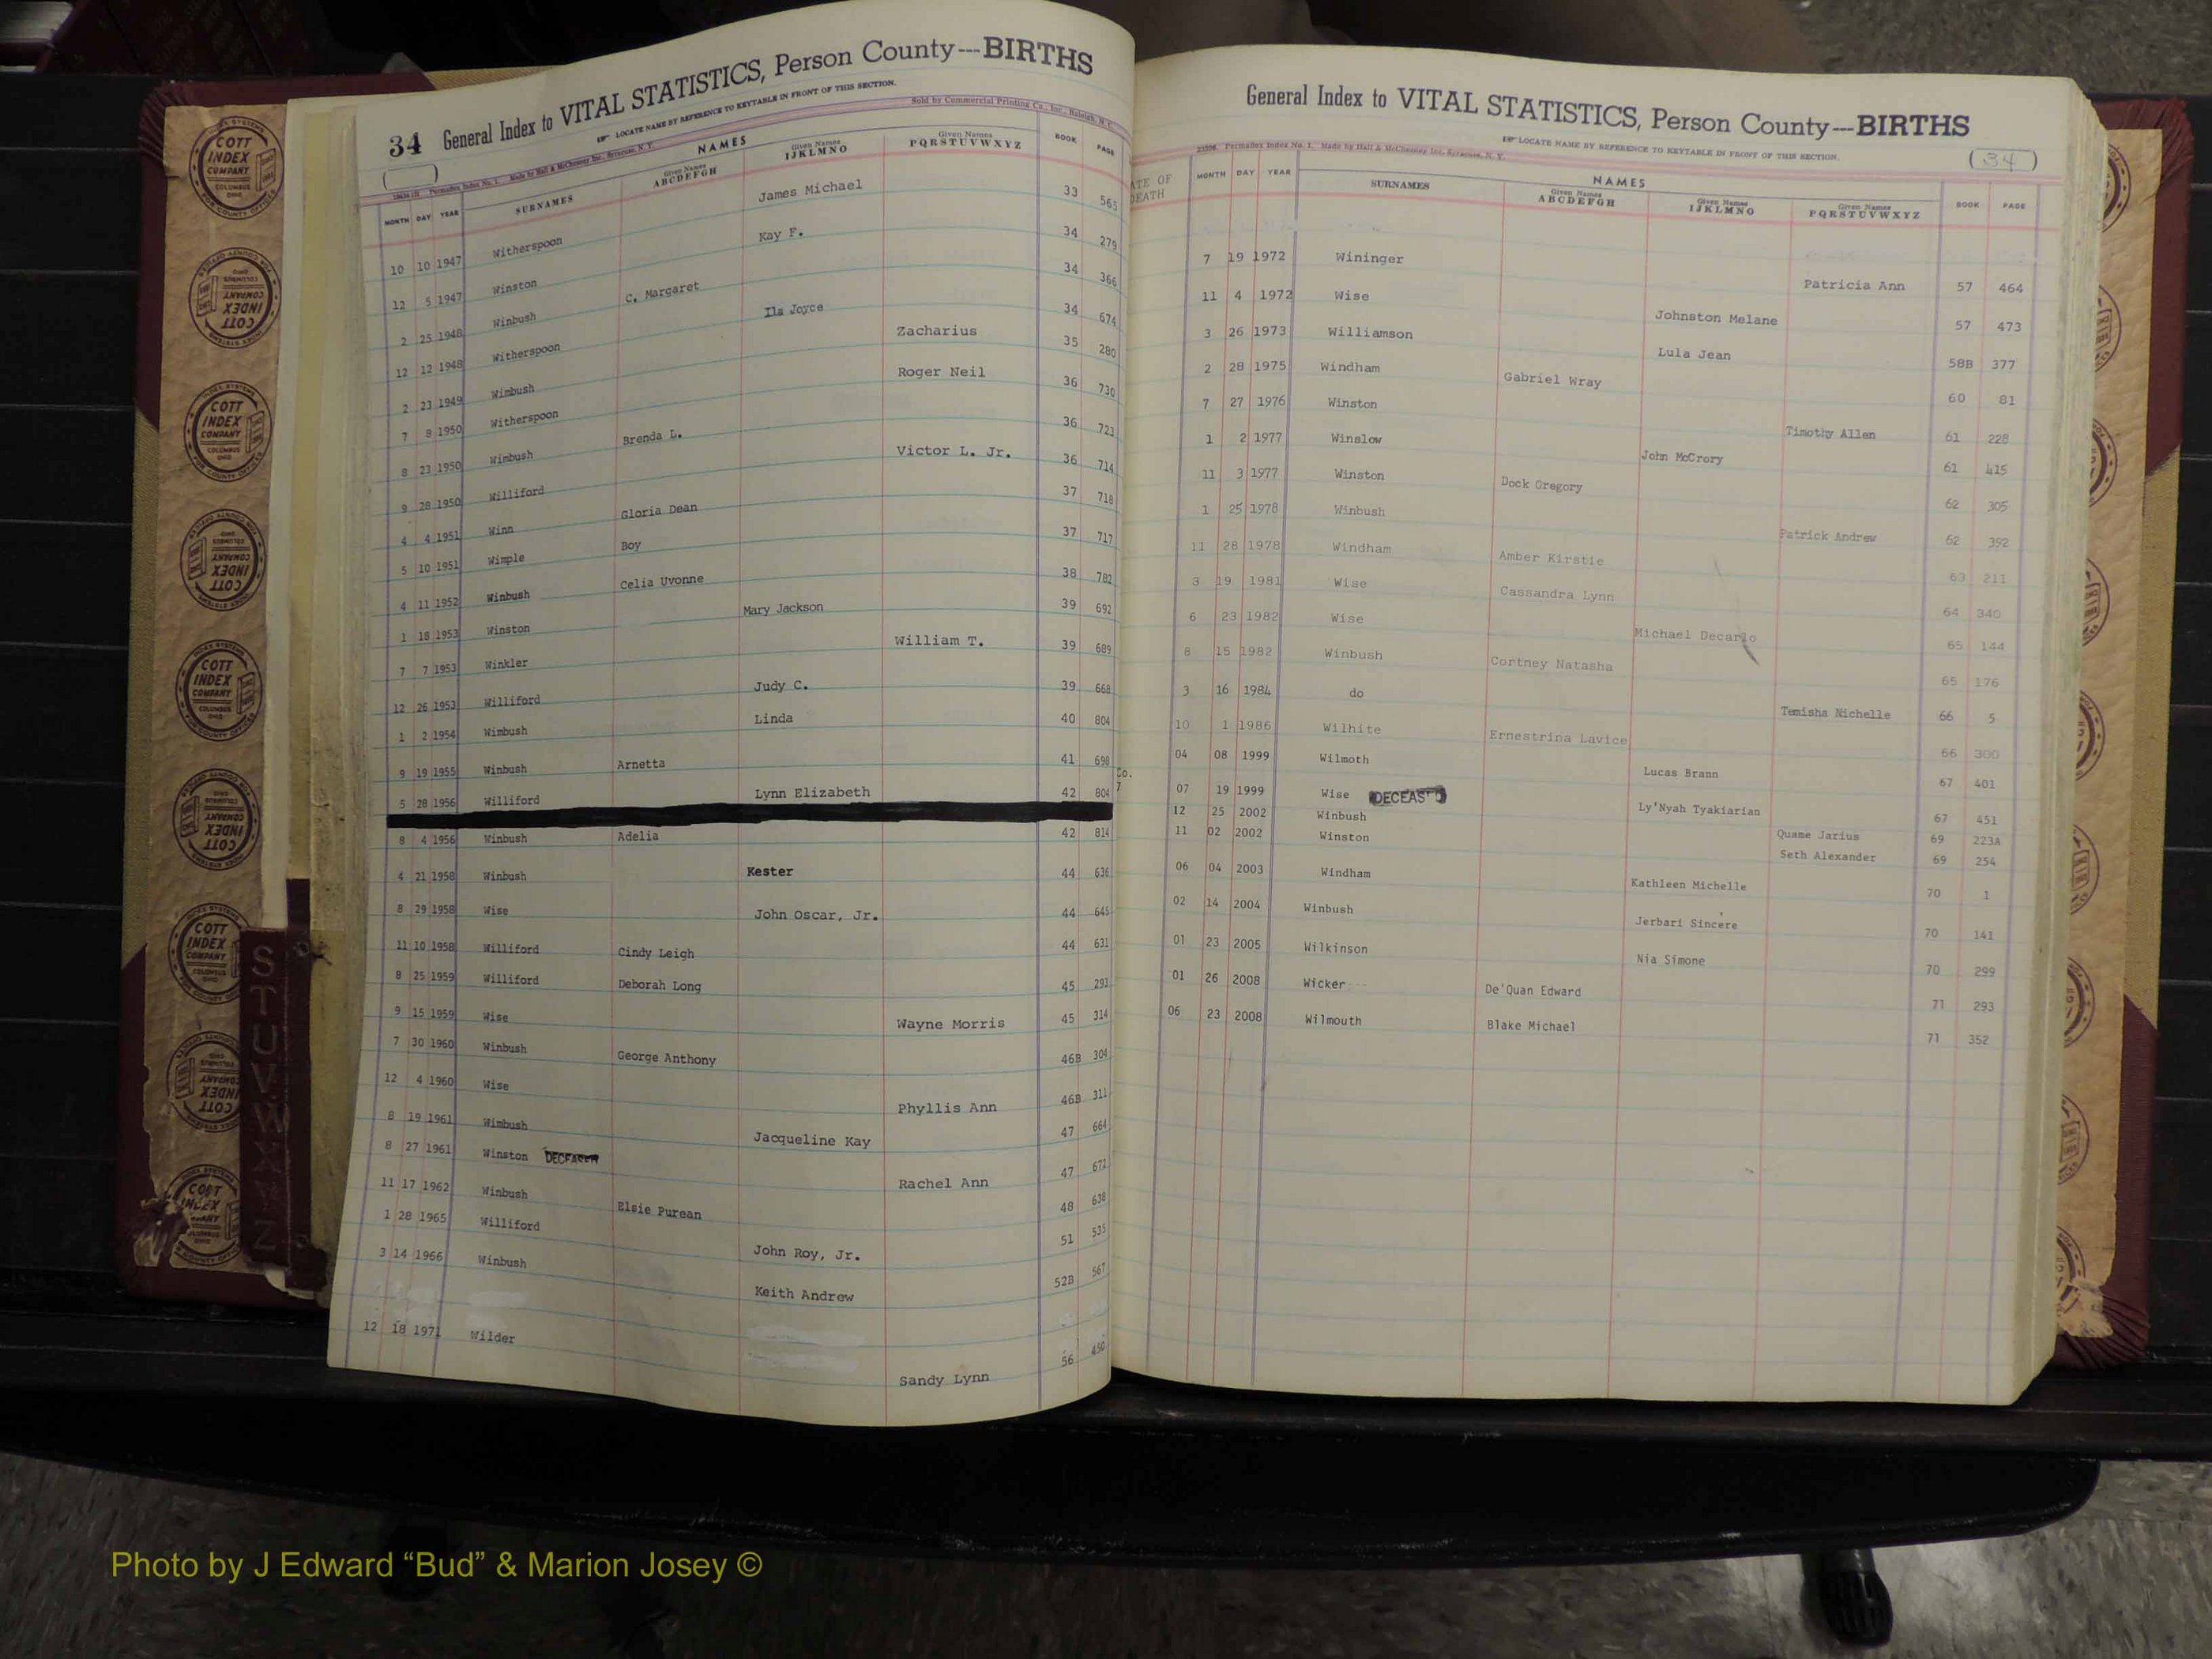 34 General Index to VITAL STATISTICS, Person County---BIRTHS
LOCATE NAME BY REFERENCE TO KEYTABLE IN FRONT OF THIS SECTION.
Sold by Commercial Printing Co., Inc., Raleigh, N. C.
Permadex Index No. 1. Made by Hall & McChesney Inc., Syracuse, N. Y.
NAMES
MONTH DAY YEAR SURNAMES Given Names ABCDEFGH Given Names IJKLMNO Given Names PQRSTUVWXYZ BOOK PAGE
10 10 1947 Witherspoon James Michael 33 565
12 5 1947 Winston Kay F. 34 279
2 25 1948 Winbush C. Margaret 34 366
12 12 1948 Witherspoon Ila Joyce 34 674
2 23 1949 Wimbush Zacharius 35 280
7 8 1950 Witherspoon Roger Neil 36 730
8 23 1950 Wimbush Brenda L. 36 723
9 28 1950 Williford Victor L. Jr. 36 714
4 4 1951 Winn Gloria Dean 37 718
5 10 1951 Wimple Boy 37 717
4 11 1952 Winbush Celia Uvonne 38 782
1 18 1953 Winston Mary Jackson 39 692
7 7 1953 Winkler William T. 39 689
12 26 1953 Williford Judy C. 39 668
1 2 1954 Wimbush Linda 40 804
9 19 1955 Winbush Arnetta 41 698
5 28 1956 Williford Lynn Elizabeth 42 804
8 4 1956 Winbush Adelia 42 814
4 21 1958 Winbush Kester 44 636
8 29 1958 Wise John Oscar, Jr. 44 645
11 10 1958 Williford Cindy Leigh 44 631
8 25 1959 Williford Deborah Long 45 291
9 15 1959 Wise Wayne Morris 45 314
7 30 1960 Winbush George Anthony 46B 304
12 4 1960 Wise Phyllis Ann 46B 311
8 19 1961 Wimbush Jacqueline Kay 47 664
8 27 1961 Winston DECEASED Rachel Ann 47 672
11 17 1962 Winbush Elsie Purean 48 638
1 28 1965 Williford John Roy, Jr. 51 535
3 14 1966 Winbush Keith Andrew 52B 567
12 18 1971 Wilder Sandy Lynn 56 450
General Index to VITAL STATISTICS, Person County---BIRTHS
LOCATE NAME BY REFERENCE TO KEYTABLE IN FRONT OF THIS SECTION.
(34)
Permadex Index No. 1. Made by Hall & McChesney Inc. Syracuse, N. Y.
ATE OF
DEATH
NAMES
MONTH DAY YEAR SURNAMES Given Names ABCDEFGH Given Names IJKLMNO Given Names PQRSTUVWXYZ BOOK PAGE
7 19 1972 Wininger Patricia Ann 57 464
11 4 1972 Wise Johnston Melane 57 473
3 26 1973 Williamson Lula Jean 58B 377
2 28 1975 Windham Gabriel Wray 60 81
7 27 1976 Winston Timothy Allen 61 228
1 2 1977 Winslow John McCrory 61 415
11 3 1977 Winston Dock Gregory 62 305
1 25 1978 Winbush Patrick Andrew 62 392
11 28 1978 Windham Amber Kirstie 63 211
3 19 1981 Wise Cassandra Lynn 64 340
6 23 1982 Wise Michael Decarlo 65 144
8 15 1982 Winbush Cortney Natasha 65 176
3 16 1984 do Temisha Nichelle 66 5
10 1 1986 Wilhite Ernestrina Lavice 66 300
04 08 1999 Wilmoth Lucas Brann 67 401
Co.
7
07 19 1999 Wise DECEASED Ly'Nyah Tyakiarian 67 451
12 25 2002 Winbush Quame Jarius 69 223A
11 02 2002 Winston Seth Alexander 69 254
06 04 2003 Windham Kathleen Michelle 70 1
02 14 2004 Winbush Jerbari Sincere 70 141
01 23 2005 Wilkinson Nia Simone 70 299
01 26 2008 Wicker De'Quan Edward 71 293
06 23 2008 Wilmouth Blake Michael 71 352
COTT
INDEX
COMPANY
COLUMBUS
OHIO
S
T
U
V
W
X
Y
Z
Photo by J Edward “Bud” & Marion Josey ©